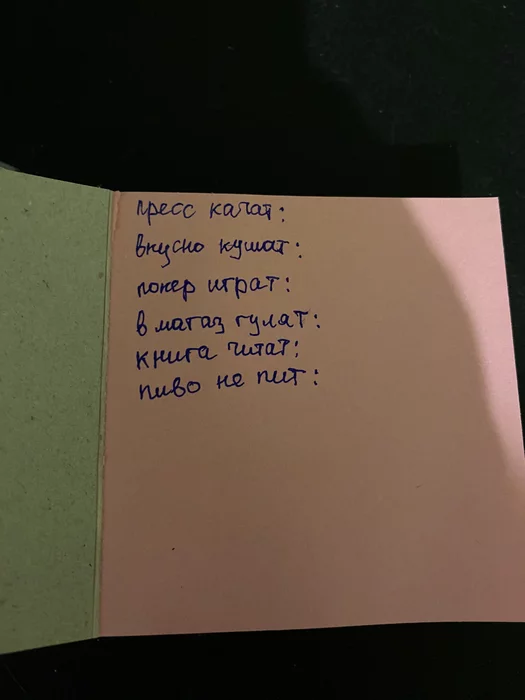 пресс качат:
вкусно кушат:
покер играт:
в магаз гулят:
книга читат:
пиво не пит: